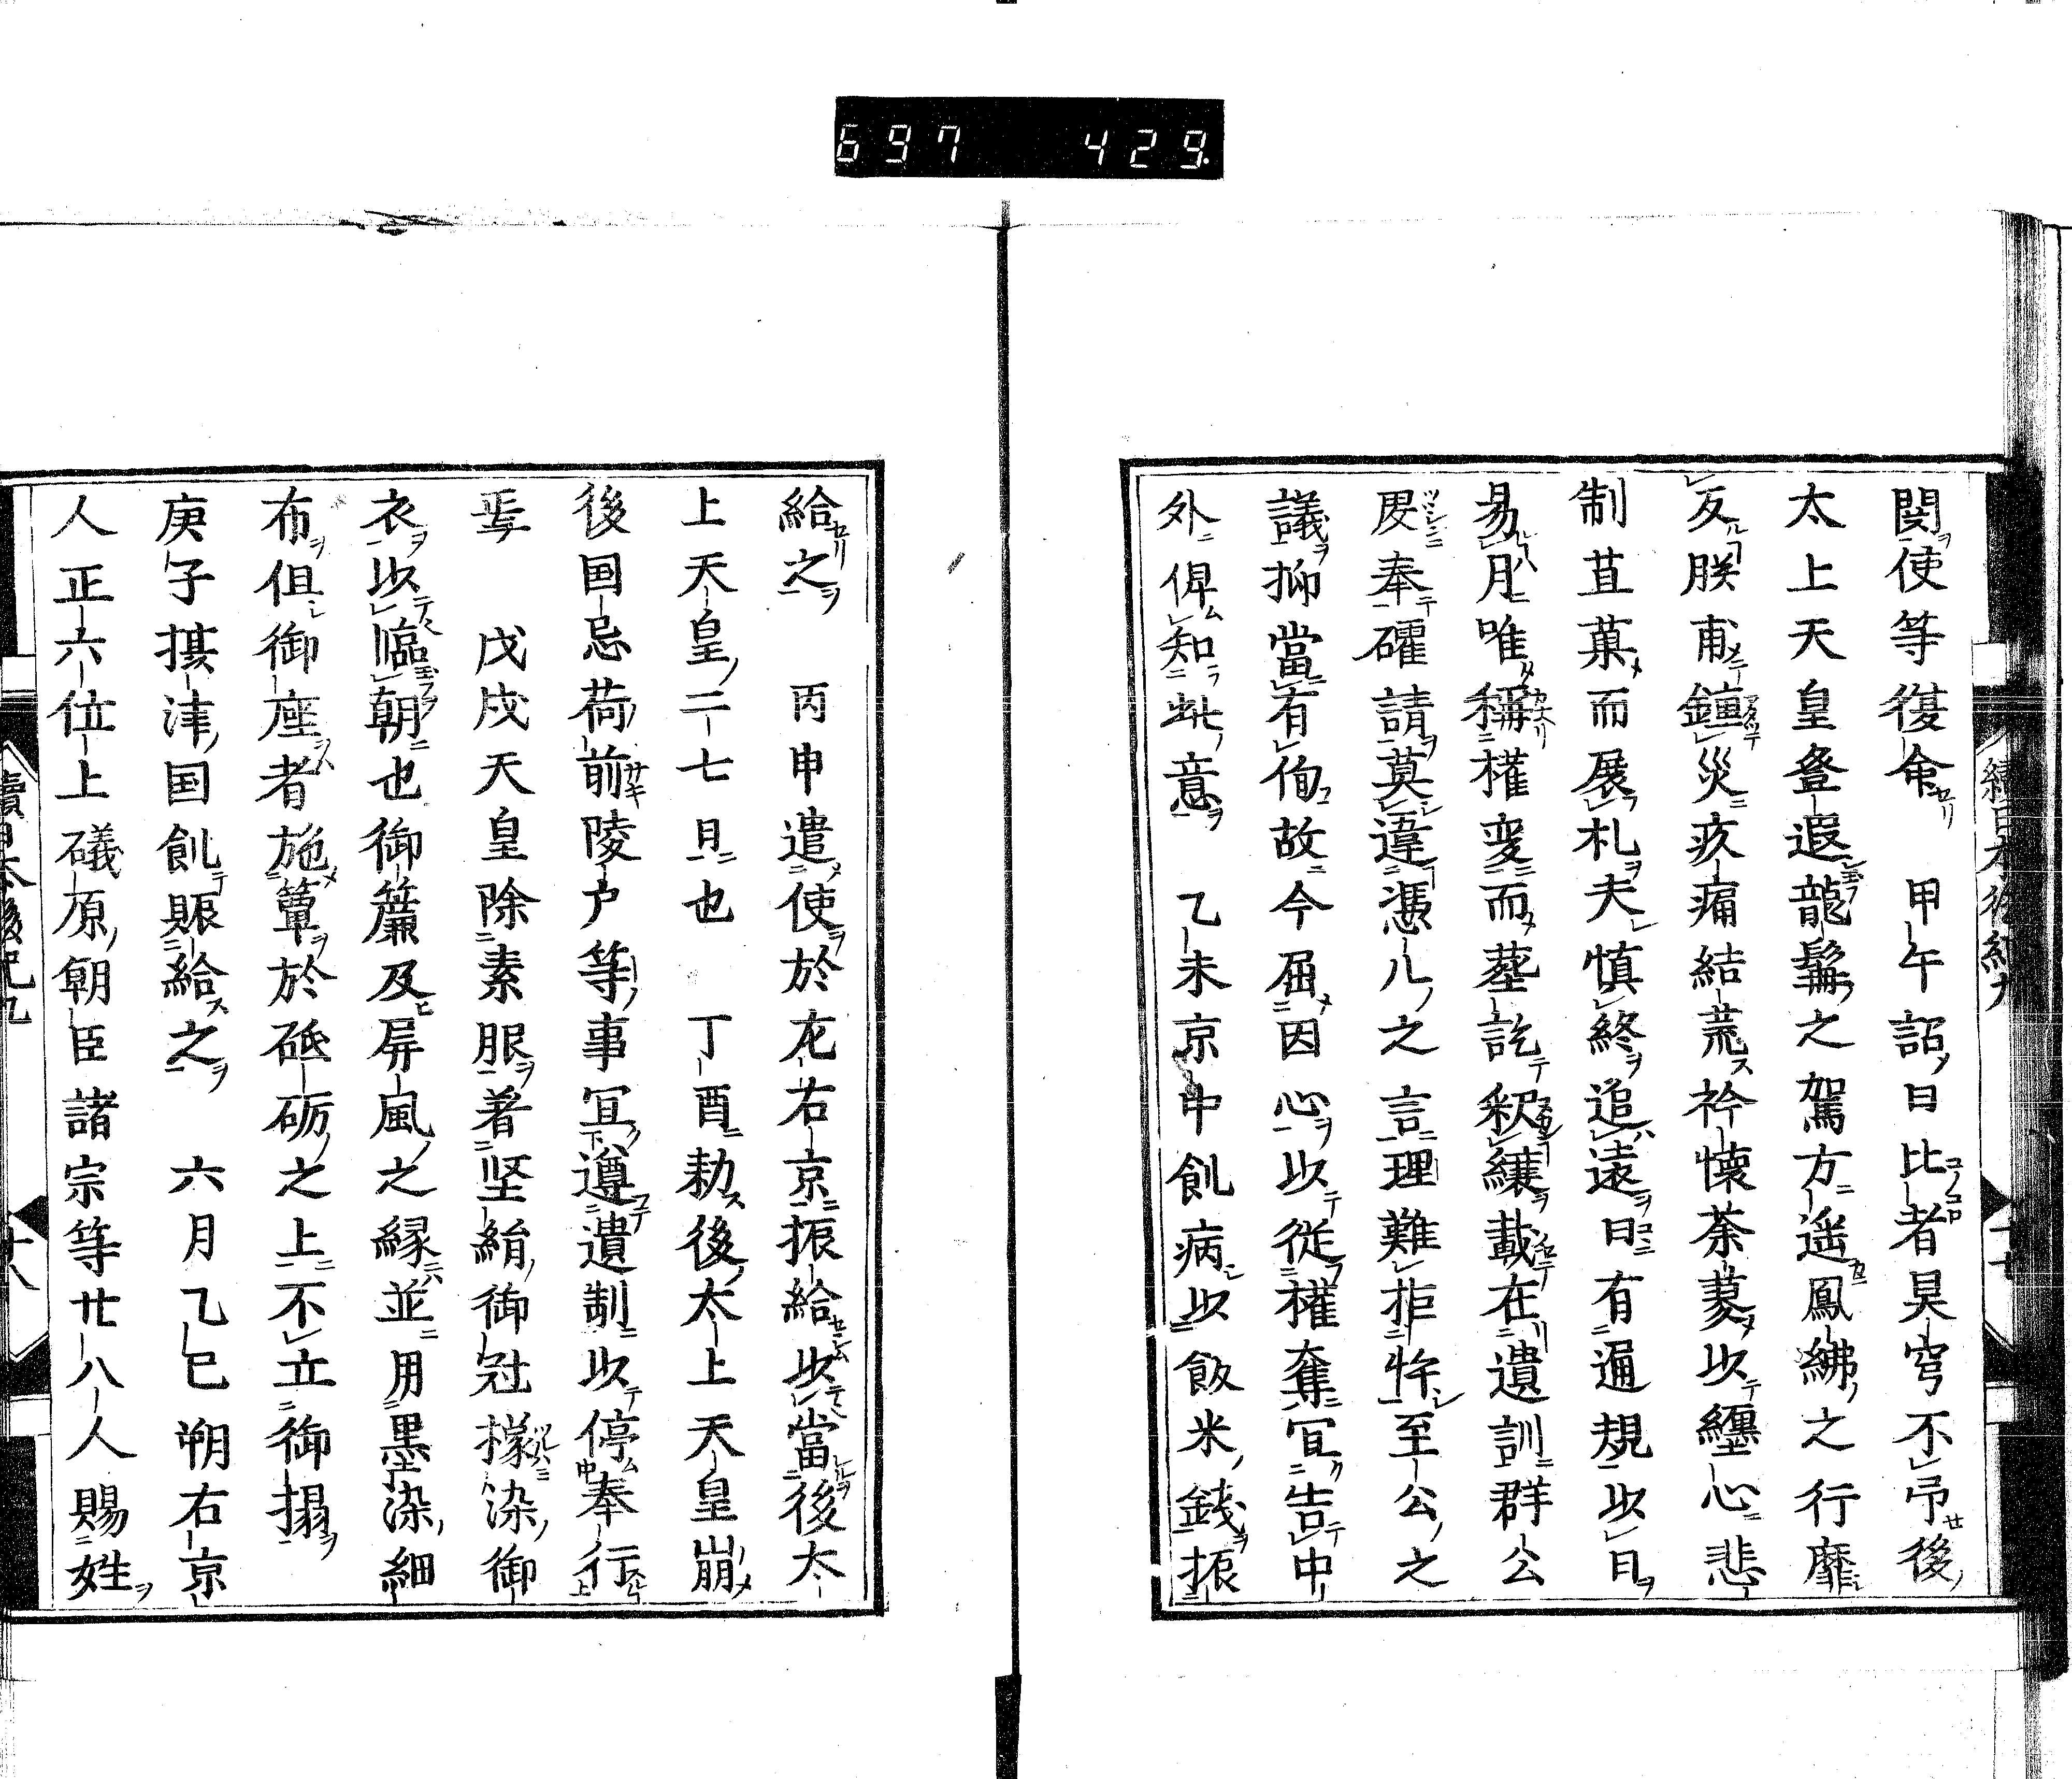 697 429.
続日本後紀九 十七
関使等復命 甲午詔曰比者昊穹不弔後
太上天皇登遐龍髯之駕方遥鳳紼之行靡
反朕甫鍾災疚痛結荒衿懐荼蓼以纒心悲
制苴菓而展札夫慎終追遠日有通規以日
易月唯稱権変而葬訖釈纕載在遺訓群公
〻奉礭請莫違憑几之言理難拒忤至公之
議抑當有侚故今屈因心以従権奪冝告中
外俾知此意 乙未京中飢病以飯米錢振
給之 丙申遣使於左右京振給以當後太
上天皇二七日也 丁酉勅後太上天皇崩
後国忌荷前陵户等事冝遵遺制以停奉行
焉 戊戌天皇除素服著堅絹御冠橡染御
衣以臨朝也御簾及屏風之縁並用墨染細
布但御座者施簟於砥砺之上不立御搨
庚子摂津国飢賑給之 六月乙巳朔右京
人正六位上礒原朝臣諸宗等廿八人賜姓
續日本後紀九 十八